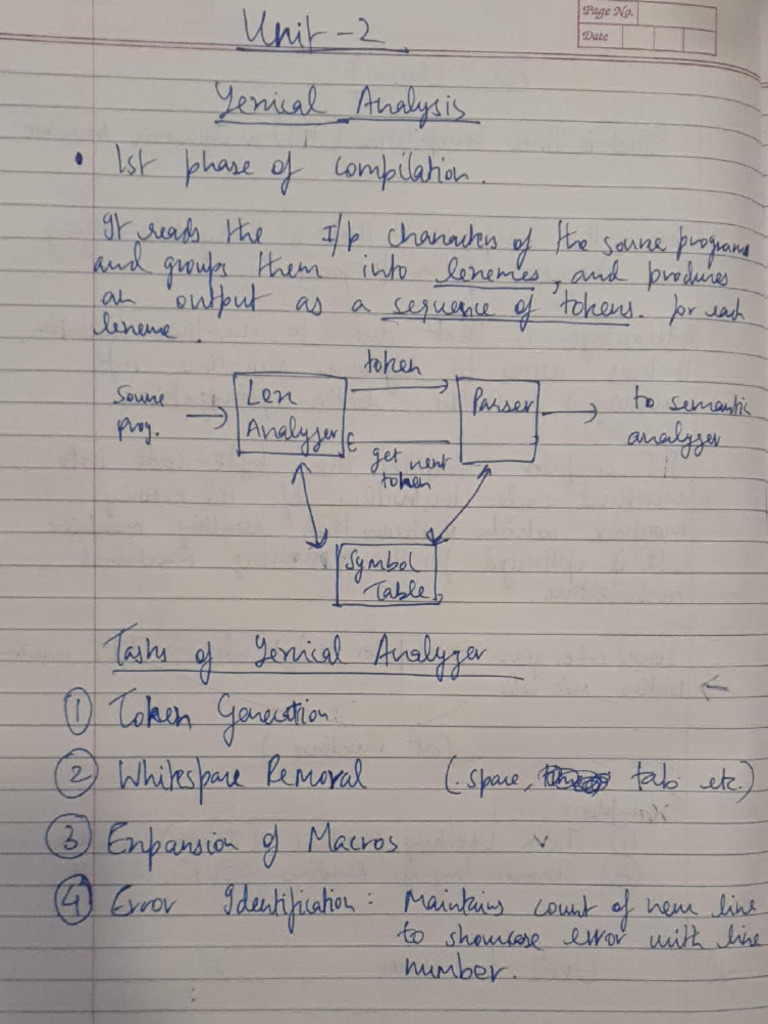 Page No.
Date
Unit - 2
Lexical Analysis
• 1st phase of compilation.
It reads the I/p characters of the source program
and groups them into lexemes, and produces
an output as a sequence of tokens. for each
lexeme.
token
Source
prog.
Lex
Analyzer
Parser
to semantic
analyzer
get next
token
Symbol
Table
Tasks of Lexical Analyzer
① Token Generation
② Whitespace Removal (space, tab etc.)
③ Expansion of Macros
④ Error Identification: Maintains count of new line
to showcase error with line
number.